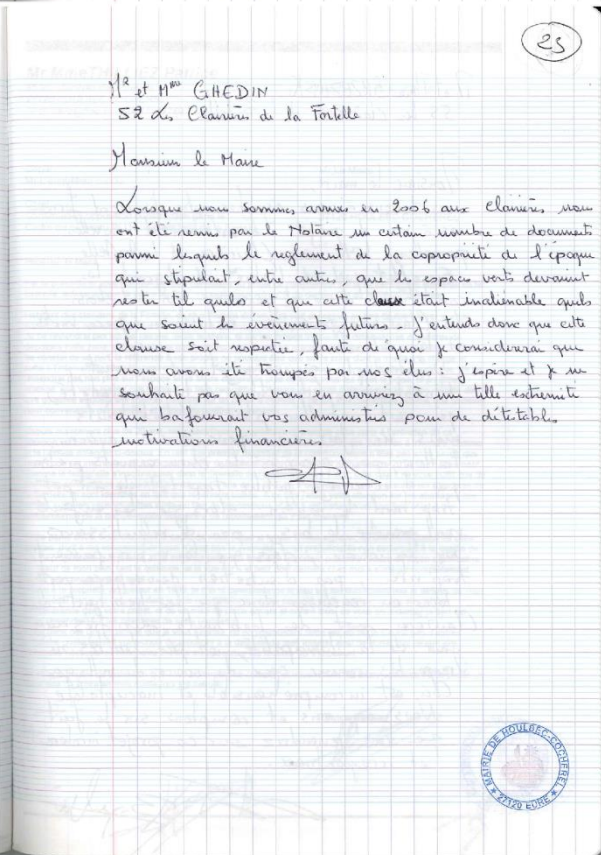 25
Mr et Mme GHEDIN
52 Les Clairières de la Fortelle
Monsieur le Maire
Lorsque nous sommes arrivés en 2006 aux Clairières nous
ont été remis par le Notaire un certain nombre de documents
parmi lesquels le reglement de la copropriété de l'époque
qui stipulait, entre autres, que les espaces verts devaient
rester tel quels et que cette clause était inaliénable quels
que soient les évènements futurs. J'entends donc que cette
clause soit respectée, faute de quoi je considérerai que
nous avons été trompés par nos élus : j'espère et je ne
souhaite pas que vous en arriviez à une telle extremité
qui bafouerait vos administrés pour de détestables
motivations financières.
MAIRIE DE HOULBEC-COCHEREL
27120 EURE